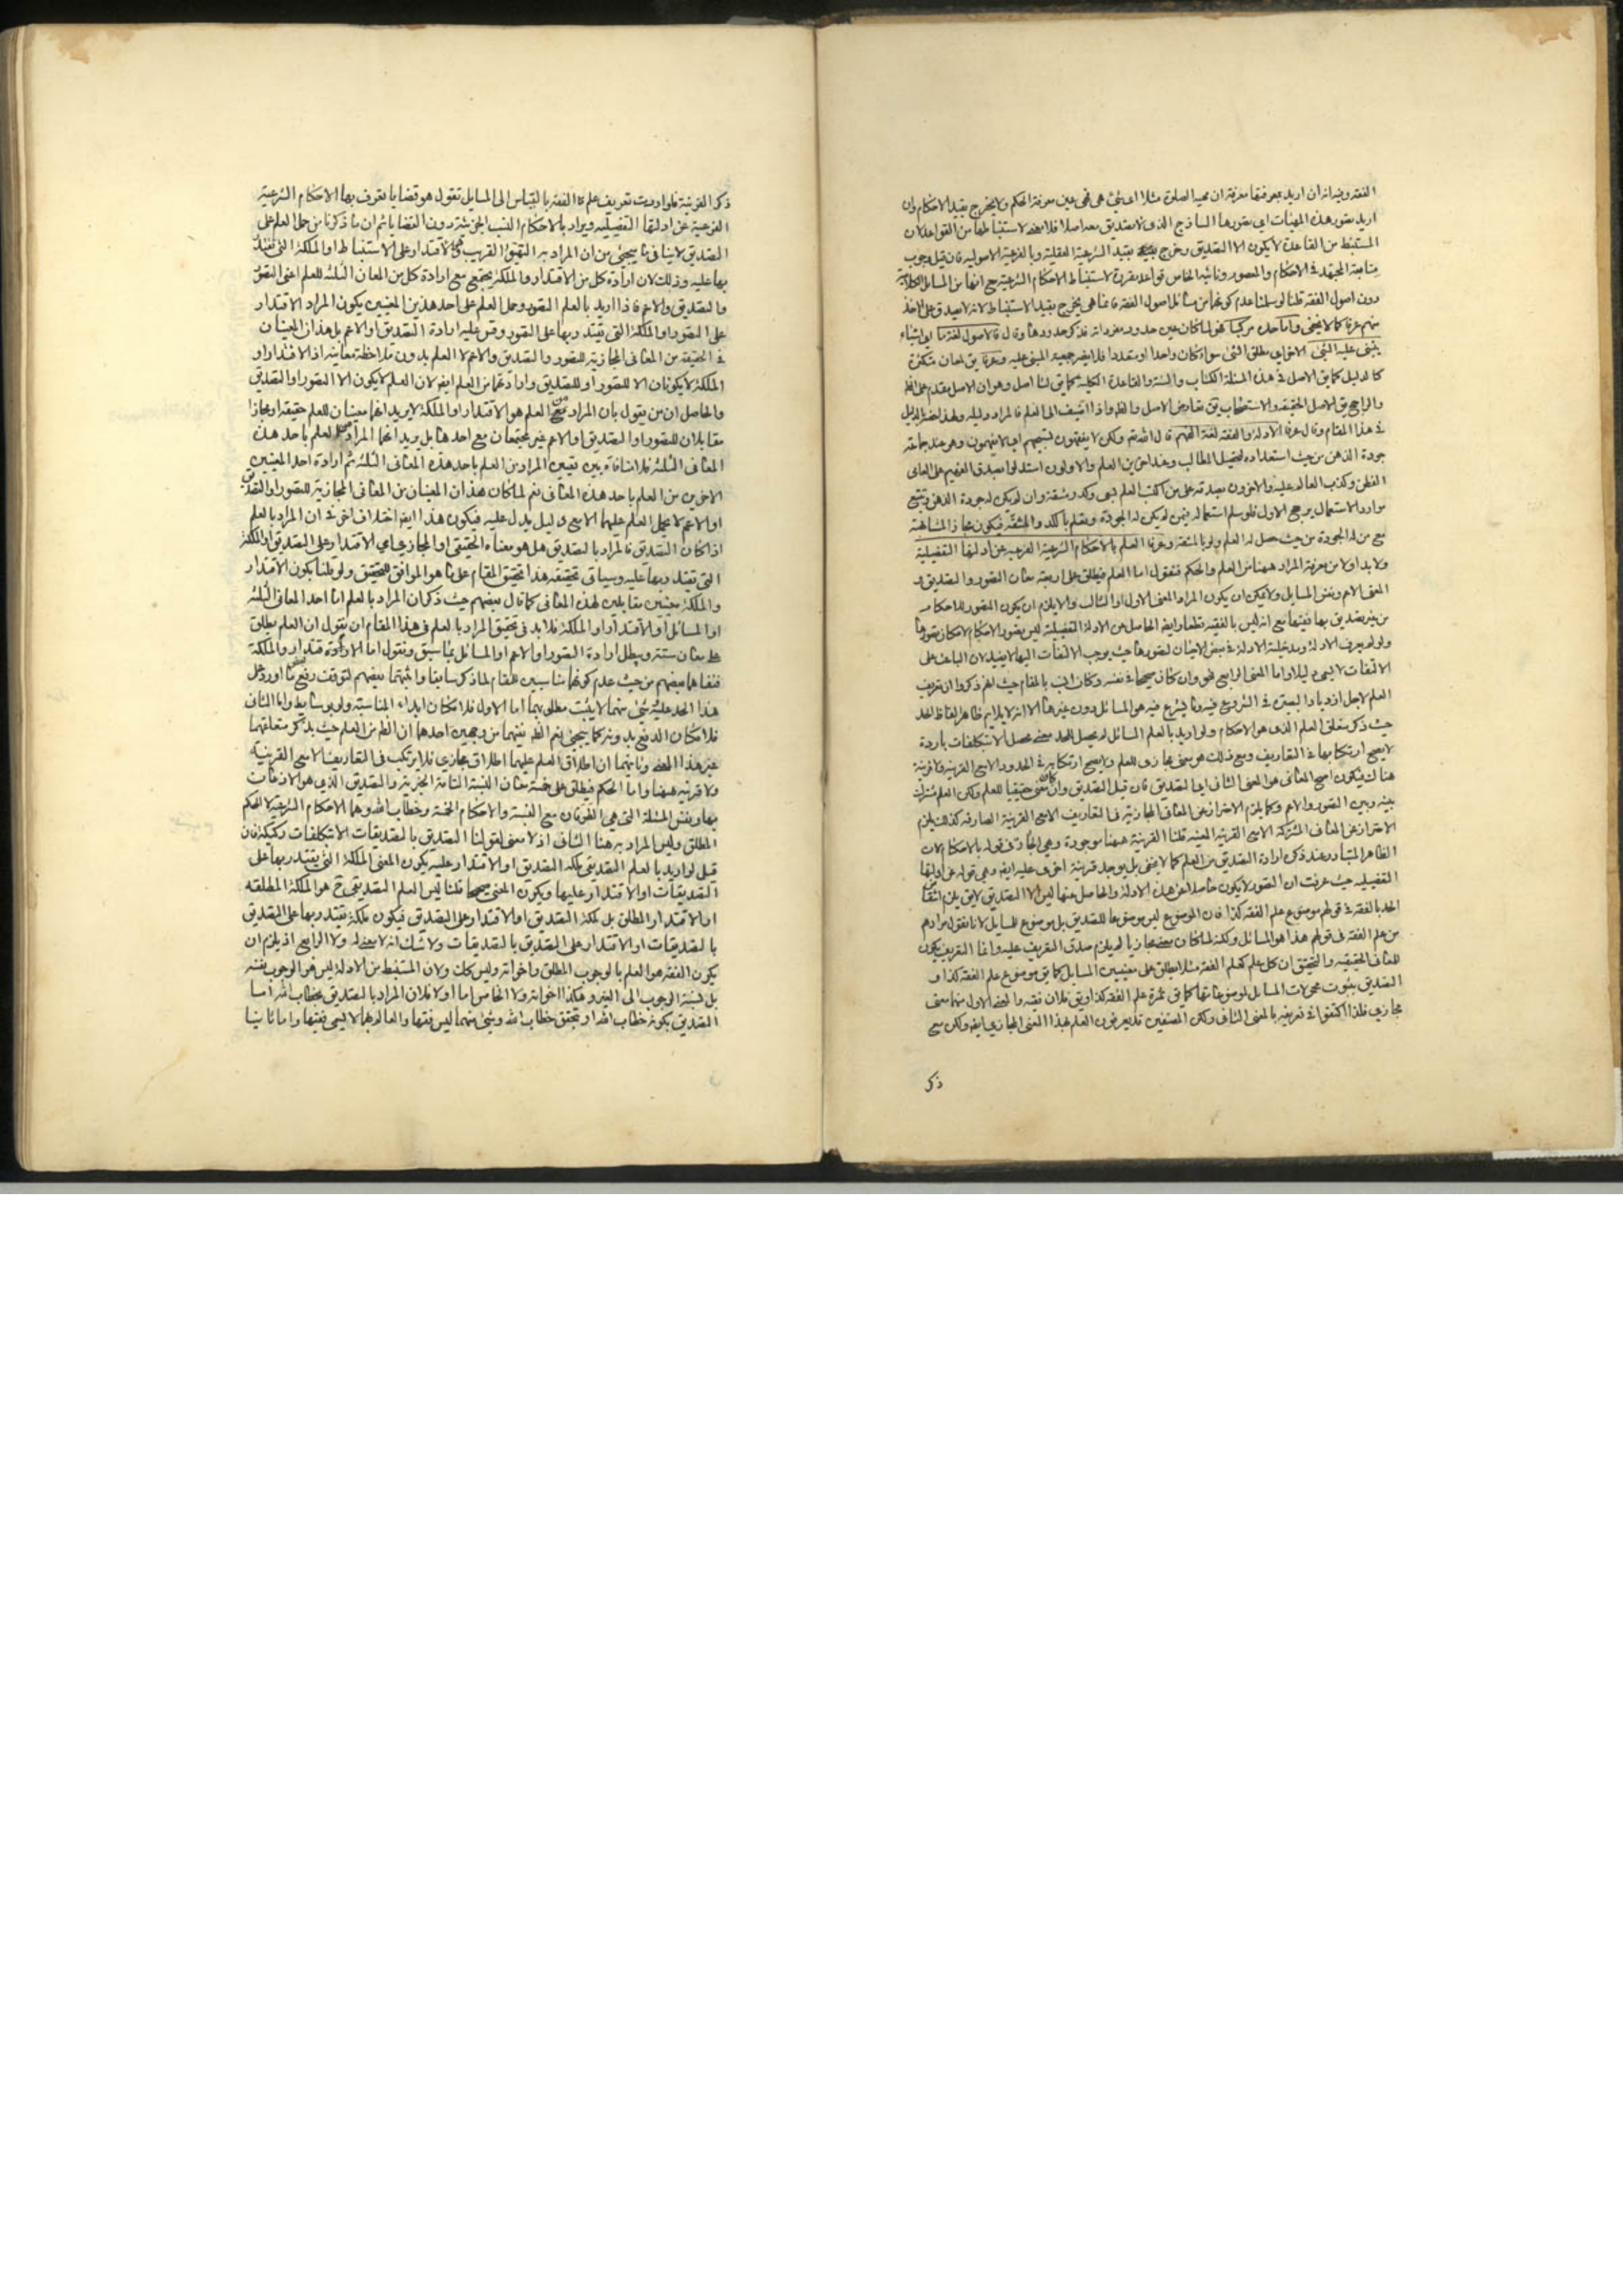 الفقه وفيه انه ان اريد بمعرفتها معرفة ان مهية الصلوة مثلا اى شئ هى فهى عين معرفة الحكم فلا يخرج بقيد الاحكام وان
اريد تصور هذه المهيات اى تصورها الساذج الذى لا تصديق معه اصلا فلا معنى لاستنباطها من القواعد لان
المستنبط من القاعدة لا يكون الا التصديق وخرج بقيد الشرعية العقلية وبالفرعية الاصولية فان قيل وجوب
متابعة المجتهد فى الاحكام
دون اصول الفقه قلنا لو سلمنا عدم كونهما من مسائل اصول الفقه فانما هى يخرج بقيد الاستنباط لانه لا يصدق على
منهم عرفا كما لا يخفى واما حده مركبا فهو لما كان عين حدود مفرداته فذكر حدودها وقال فالاصول لغة ما
يبتنى عليه الشئ
كالدليل كما يق الاصل فى هذه المسئلة الكتاب والسنة والقاعدة الكلية كما يق لنا اصل وهو ان الاصل مقدم على
والراجح يق الاصل الحقيقة والاستصحاب يق تعارض الاصل والظ واذا اضيف الى العلم فالمراد دليله
فى هذا المقام وقال عرفا الادلة والفقه لغة الفهم قال الله تع ولكن لا يفقهون تسبيحهم اى لا يفهمون وهو عند جماعة
جودة الذهن من حيث استعداده لتحصيل المطالب وعند اخرين العلم والاولون استدلوا بصدق الفهيم على العامى
الفطن وكذب العالم عليه والاخرون بصدقه على من اكتسب العلم
موارد الاستعمال يرجح الاول فلو سلم استعماله فيمن لم يكن له الجودة وتعلم بالكد والمشقة فيكون مجازا لمشابهته
مع من له الجودة من حيث حصل له العلم ولو بالمشقة وعرفا العلم بالاحكام الشرعية الفرعية عن ادلتها التفصيلية
ولا بد اولا من معرفة المراد ههنا من العلم والحكم فنقول اما العلم فيطلق على اربعة معان التصور والتصديق و
المعنى الاعم ونفس المسايل ولا يمكن ان يكون المراد المعنى الاول او الثالث والا يلزم ان يكون المتصور للاحكام
من غير تصديق بها فقيها مع انه ليس بالفقيه قطعا وايضا الحاصل عن الادلة التفصيلية ليس تصور الاحكام لامكان تصورها
ولو لم يعرف الادلة
الالتفات لا يسمى دليلا واما المعنى الرابع فهو وان كان صحيحا فى نفسه وكان انسب بالمقام حيث انهم ذكروا ان تعريف
العلم لاجل ازدياد البصيرة فى الشروع فيه وما يشرع فيه هو المسائل دون غيرها الا انه لا يلايم ظاهر الفاظ الحد
حيث ذكر متعلق العلم الذى هو الاحكام ولو اريد بالعلم المسائل لم يحصل للحد معنى محصل الا بتكلفات باردة
لا يصح ارتكابها فى التعاريف ومع ذلك هو معنى مجازى للعلم ولا يصح ارتكابه فى الحدود الا مع القرينة ولا قرينة
هنا ك فيكون اصح المعانى هو المعنى الثانى اى التصديق فان قيل التصديق وان كان معنى حقيقيا للعلم ولكن العلم مشترك
بينه وبين التصور والاعم وكما يلزم الاحتراز عن المعانى المجازية فى التعاريف الا مع القرينة الصارفة كذلك يلزم
الاحتراز عن المعانى المشتركة الا مع القرينة المعينة قلنا القرينة ههنا موجودة وهى المجاز فى قوله بالاحكام لان
الظاهر المتبادر عند ذكره ارادة التصديق من العلم كما لا يخفى بل يوجد قرينة اخرى عليه ايضا وهى قوله عن ادلتها
التفصيلية حيث عرفت ان التصور لا يكون حاصلا عن هذه الادلة والحاصل عنها ليس الا التصديق لا يق يلزم
الحد بالفقه فى قولهم موضوع علم الفقه كذا فان الموضوع ليس موضوعا للتصديق بل موضوع للمسايل لانا نقول مرادهم
من علم الفقه فى قولهم هذا هو المسائل ولكنه لما كان معنى مجازيا لم يلزم صدق التعريف عليه وانما التعريف يكون
للمعانى الحقيقية والتحقيق ان كل علم كعلم الفقه مثلا يطلق على معنيين المسايل كما يق موضوع علم الفقه كذا و
التصديق بثبوت محمولات المسايل لموضوعاتها كما يق ثمرة علم الفقه كذا ويق فلان فقيه والمعنى الاول منهما معنى
مجازى فلذا اكتفوا فى تعريفه بالمعنى الثانى ولكن المصنفين قد يعرفون العلم بهذا المعنى المجازى ايضا ولكن مع
ذكر
ذكر القرينة فلو اردت تعريف علم الفقه بالقياس الى المسايل تقول هو قضايا تعرف بها الاحكام الشرعية
الفرعية عن ادلتها التفصيلية ويراد بالاحكام النسب الجزئية دون القضايا ثم ان ما ذكرنا من حمل العلم على
التصديق لا ينافى ما سيجئ من ان المراد به التهيؤ القريب والاقتدار على الاستنباط او الملكة التى يقتدر
بها عليه وذلك لان ارادة كل من الاقتدار والملكة يجتمع مع ارادة كل من المعانى الثلثة للعلم اعنى التصور
والتصديق والاعم فاذا اريد بالعلم التصور وحمل العلم على احد هذين المعنيين يكون المراد الاقتدار
على التصور او الملكة التى يقتدر بها على التصور وقس عليه ارادة التصديق او الاعم بل هذان المعنيان
فى الحقيقة من المعانى المجازية للتصور والتصديق والاعم لا العلم بدون ملاحظة معانيه اذ الاقتدار او
الملكة لا يكونان الا للتصور او للتصديق وارادتهما من العلم ايضا لان العلم لا يكون الا التصور او التصديق
والحاصل ان من يقول بان المراد من العلم هو الاقتدار او الملكة لا يريد انهما معنيان للعلم حقيقة او مجازا
مقابلان للتصور او التصديق او الاعم غير مجتمعان مع احدها بل يريد انهما المراد من العلم باحد هذه
المعانى الثلثة فلا منافاة بين تعيين المراد من العلم باحد هذه المعانى الثلثة ثم ارادة احد المعنيين
الاخرين من العلم باحد هذه المعانى نعم لما كان هذان المعنيان من المعانى المجازية للتصور او التصديق
او الاعم لا يحمل العلم عليهما الا مع دليل يدل عليه فيكون هذا ايضا اختلاف اخر فى ان المراد بالعلم
اذا كان التصديق فالمراد بالتصديق هل هو معناه الحقيقى او المجازى اى الاقتدار على التصديق او الملكة
التى يقتدر بها عليه وسياتى تحقيقه هذا تحقيق المقام على ما هو الموافق للتحقيق ولو قلنا بكون الاقتدار
والملكة معنيين مقابلين لهذه المعانى كما قال بعضهم حيث ذكر ان المراد بالعلم اما احد المعانى الثلثة
او المسائل او الاقتدار او الملكة فلا بد فى تحقيق المراد بالعلم فى هذا المقام ان يقول ان العلم يطلق
على معان ستة ويبطل ارادة التصور او الاعم او المسائل بما سبق ونقول اما الاقتدار والملكة
فنفاهما بعضهم من حيث عدم كونهما مناسبين للمقام لما ذكر سابقا واثبتهما بعضهم لتوقف دفع ما اورد على
هذا الحد عليه وشئ منهما لا يثبت مطلوبهما اما الاول فلامكان ابداء المناسبة ولو بوسائط واما الثانى
فلامكان الدفع بدونه كما سيجئ نعم الظ نفيهما من وجهين احدهما ان الظ من العلم حيث يذكر متعلقهما
غير هذا المعنى وثانيهما ان اطلاق العلم عليهما اطلاق مجازى فلا يرتكب فى التعاريف الا مع القرينة
ولا قرينة ههنا واما الحكم فيطلق على خمسة معان النسبة التامة الخبرية والتصديق الذى هو الاذعان
بها ونفس المسئلة التى هى الطرفان مع النسبة والاحكام الخمسة وخطاب الله وهما الاحكام الشرعية لا الحكم
المطلق وليس المراد به هنا الثانى اذ لا معنى لقولنا التصديق بالتصديقات الا بتكلفات ركيكة فان
قيل لو اريد بالعلم التصديقى ملكة التصديق او الاقتدار عليه يكون المعنى الملكة التى يقتدر بها على
التصديقات او الاقتدار عليها ويكون المعنى صحيحا قلنا ليس العلم التصديقى ح هو الملكة المطلقة
او الاقتدار المطلق بل ملكة التصديق او الاقتدار على التصديق فيكون ملكة يقتدر بها على التصديق
بالتصديقات او الاقتدار على التصديق بالتصديقات ولا شك انه لا معنى له ولا الرابع اذ يلزم ان
يكون الفقه هو العلم بالوجوب المطلق واخواته وليس كك ولان المستنبط من الادلة ليس هو الوجوب نفسه
بل نسبة الوجوب الى الغير وهكذا اخواته ولا الخامس اما اولا فلان المراد بالتصديق بخطاب الله اما
التصديق بكونه خطاب الله او بتحقق خطاب الله وشئ منهما ليس فقها والعالم بهما لا يسمى فقيها واما ثانيا